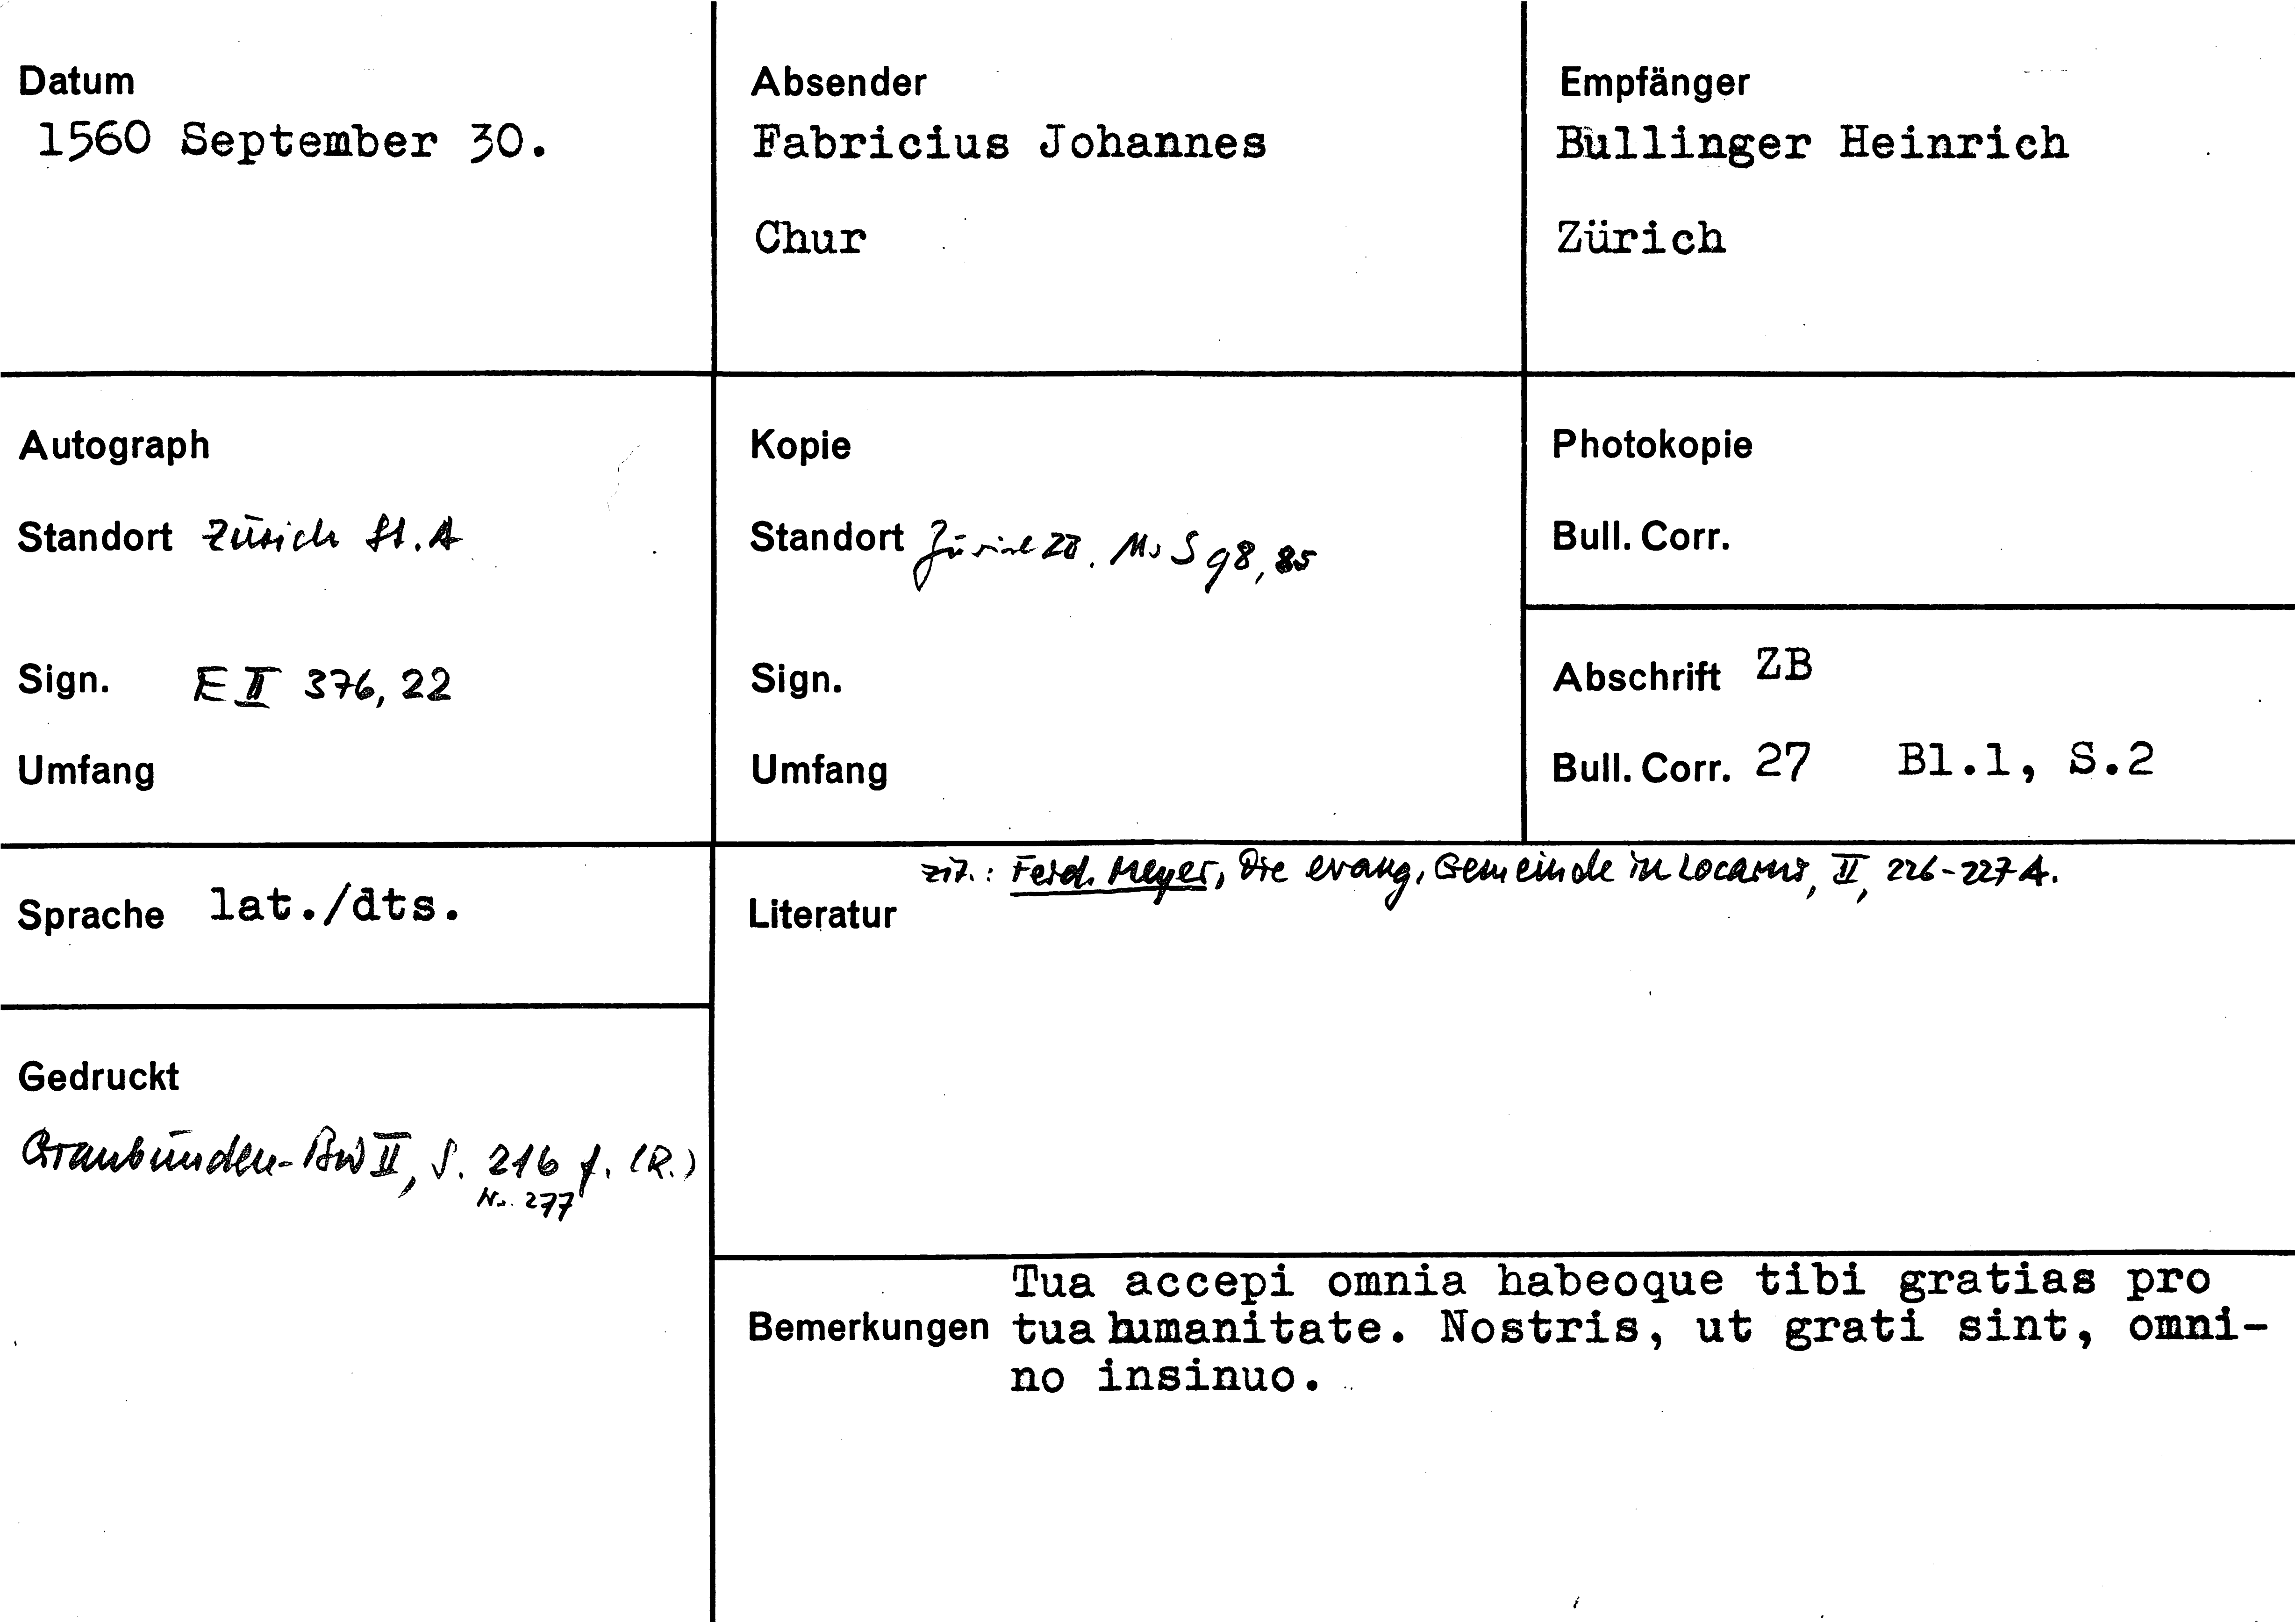 Datum
1560 September 30.
Absender
Fabricius Johannes
Chur
Empfänger
Bullinger Heinrich
Zürich
Autograph
Standort Zürich St.A
Sign. E II 376, 22
Umfang
Kopie
Standort Zürich ZB. Ms S 98, 85
Sign.
Umfang
Photokopie
Bull. Corr.
Abschrift ZB
Bull. Corr. 27 Bl.1, S.2
Sprache lat./dts.
Gedruckt
Graubünden-BW II, S. 216 f. (R.)
Nr. 277
zit.: Ferd. Meyer, Die evang. Gemeinde in Locarno, II, 226-227 A.
Literatur
Tua accepi omnia habeoque tibi gratias pro
Bemerkungen tua humanitate. Nostris, ut grati sint, omni-
no insinuo.